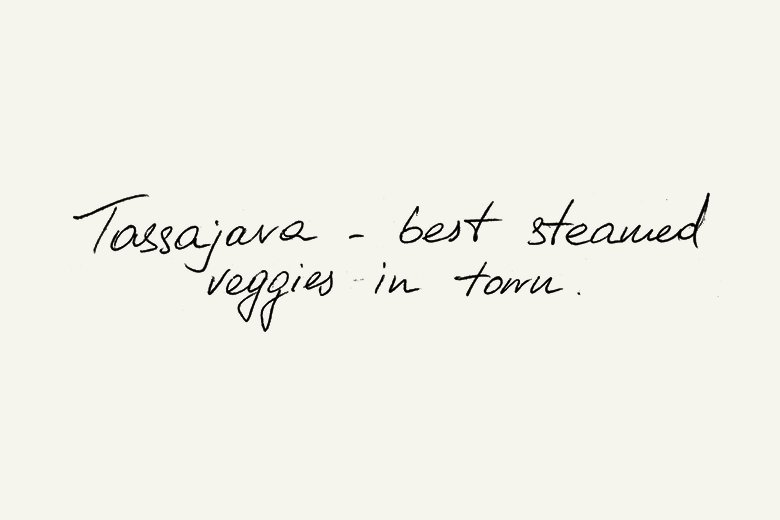 Tassajara - best steamed
veggies in town.